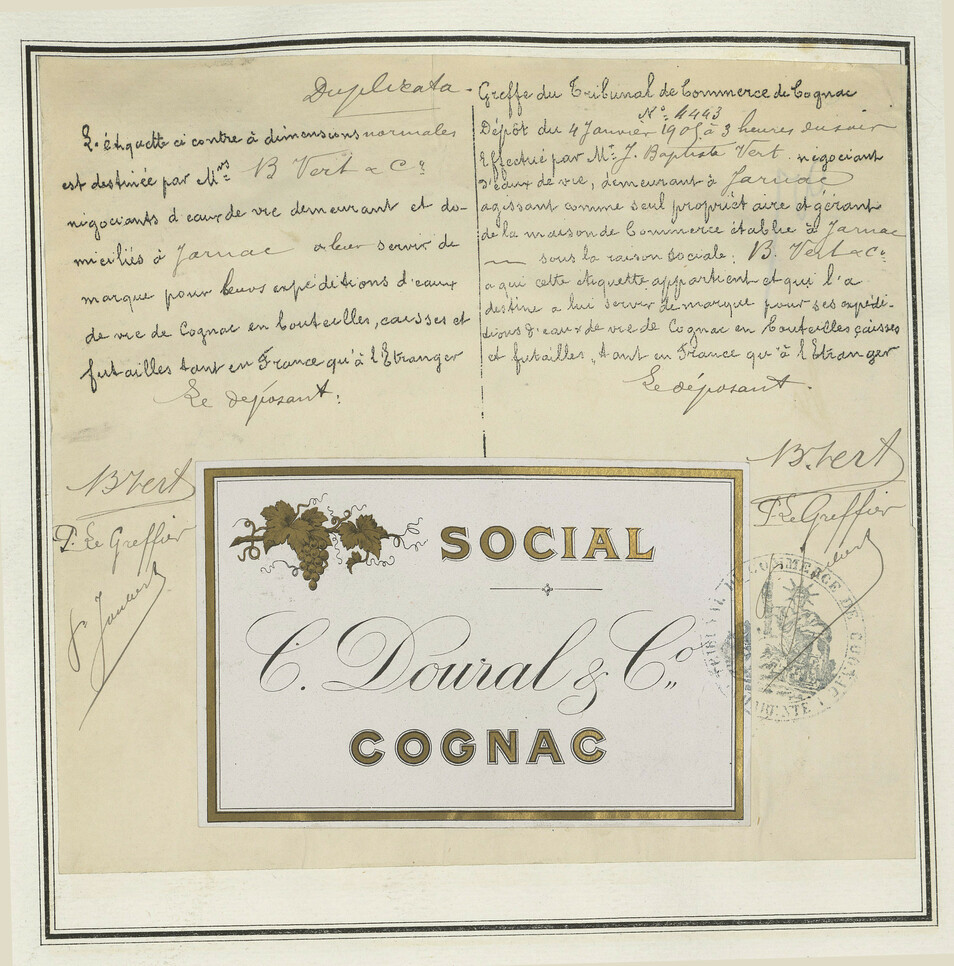 Duplicata -
L'étiquette ci contre à dimensions normales
est destinée par Mrs B Vert & Co
négociants d'eaux de vie demeurant et do-
miciliés à Jarnac a leur servir de
marque pour leurs expéditions d'eaux
de vie de Cognac en bouteilles, caisses et
futailles tant en France qu'à l'Etranger
Le déposant:
B Vert
P. Le Greffier
Greffe du Tribunal de Commerce de Cognac
No: 4443
Dépôt du 4 Janvier 1905 à 3 heures du soir
Effectué par Mr J. Baptiste Vert négociant
d'eaux de vie, demeurant à Jarnac
agissant comme seul propriétaire et gérant
de la maison de Commerce établie à Jarnac
— sous la raison sociale: B. Vert & Co
a qui cette étiquette appartient et qui l'a
destine a lui servir de marque pour ses expédi-
tions d'eaux de vie de Cognac en bouteilles caisses
et futailles, tant en France qu'à l'Etranger
Le déposant.
B. Vert
P. Le Greffier
SOCIAL
C. Doural & Co.,
COGNAC
TRIBUNAL DE COMMERCE DE COGNAC
CHARENTE